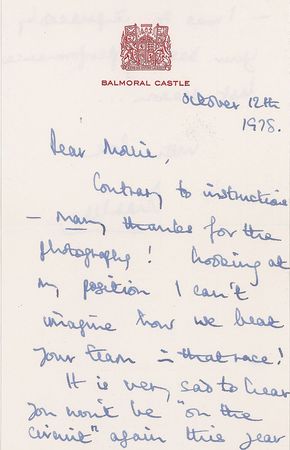 BALMORAL CASTLE
October 12th
1978.
Dear Mollie,
Contrary to instructions
- many thanks for the
photographs! Looking at
my position I can't
imagine how we beat
your team in that race!
It is very sad to hear
you won't be "on the
circuit" again this year